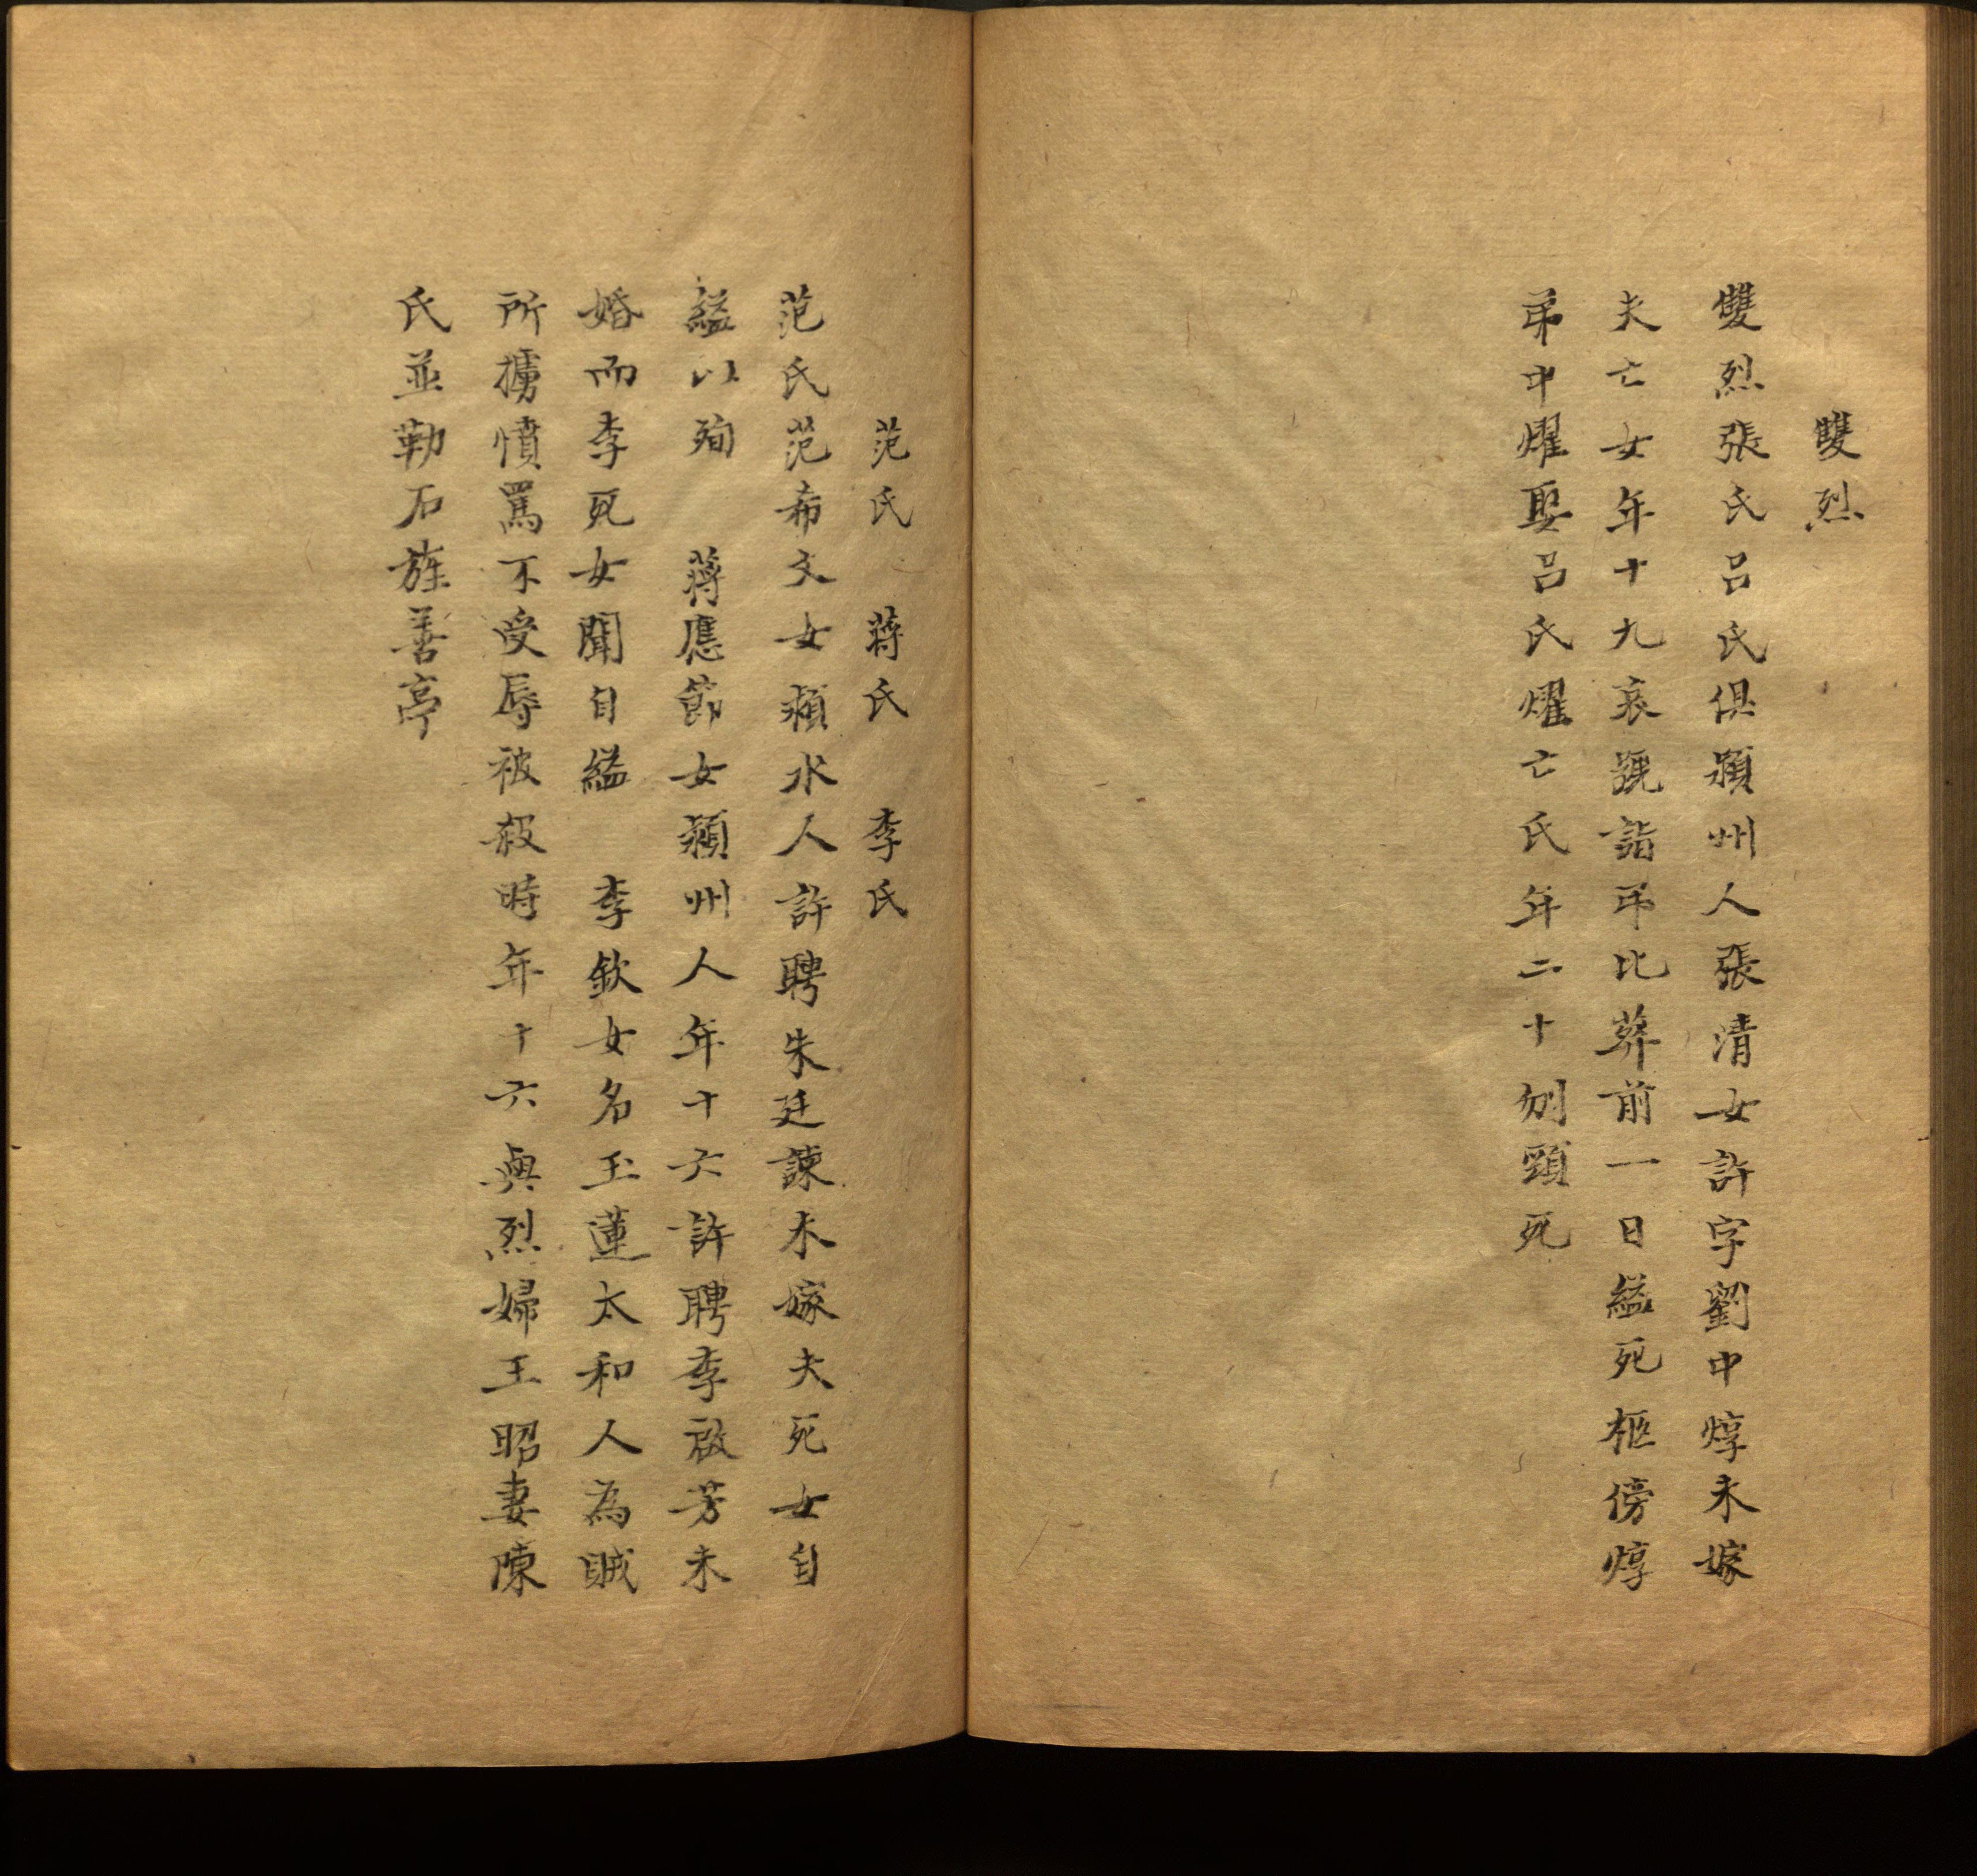 雙烈
雙烈張氏呂氏俱潁州人張清女許字劉中焞未嫁
夫亡女年十九哀號詣弔比葬前一日縊死柩傍焞
弟中燿娶呂氏燿亡氏年二十刎頸死
范氏 蔣氏 李氏
范氏范希文女潁水人許聘朱廷諫未嫁夫死女自
縊以殉 蔣應節女潁州人年十六許聘李啟芳未
婚而李死女聞自縊 李欽女名玉蓮太和人為賊
所擄憤罵不受辱被殺時年十六與烈婦王昭妻陳
氏並勒石旌善亭